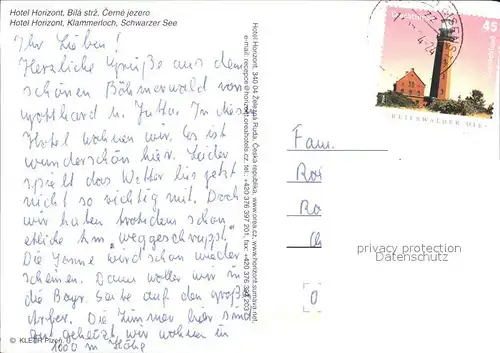 Hotel Horizont, Bílá strž, Černé jezero
Hotel Horizont, Klammerloch, Schwarzer See
Ihr Lieben!
Herzliche Grüße aus dem
schönen Böhmerwald von
Gotthard u. Jutta. In diesem
Hotel wohnen wir, es ist
wunderschön hier. Leider
spielt das Wetter bis jetzt
nicht so richtig mit. Doch
wir haben trotzdem schon
etliche km "weggeschruppt".
Die Sonne wird schon wieder
scheinen. Dann wollen wir in
die Bayr. Seite auf den großen
Arber. Die Zimmer hier sind
gut geheizt, wir wohnen in
1000 m Höhe
© KLEOR Plzeň
Hotel Horizont, 340 04 Železná Ruda, Česká republika, www.orea.cz, www.horizont.sumava.net,
45
GREIFSWALDER OIE
Fam.
Ros
Ro
Ch
0
privacy protection
Datenschutz